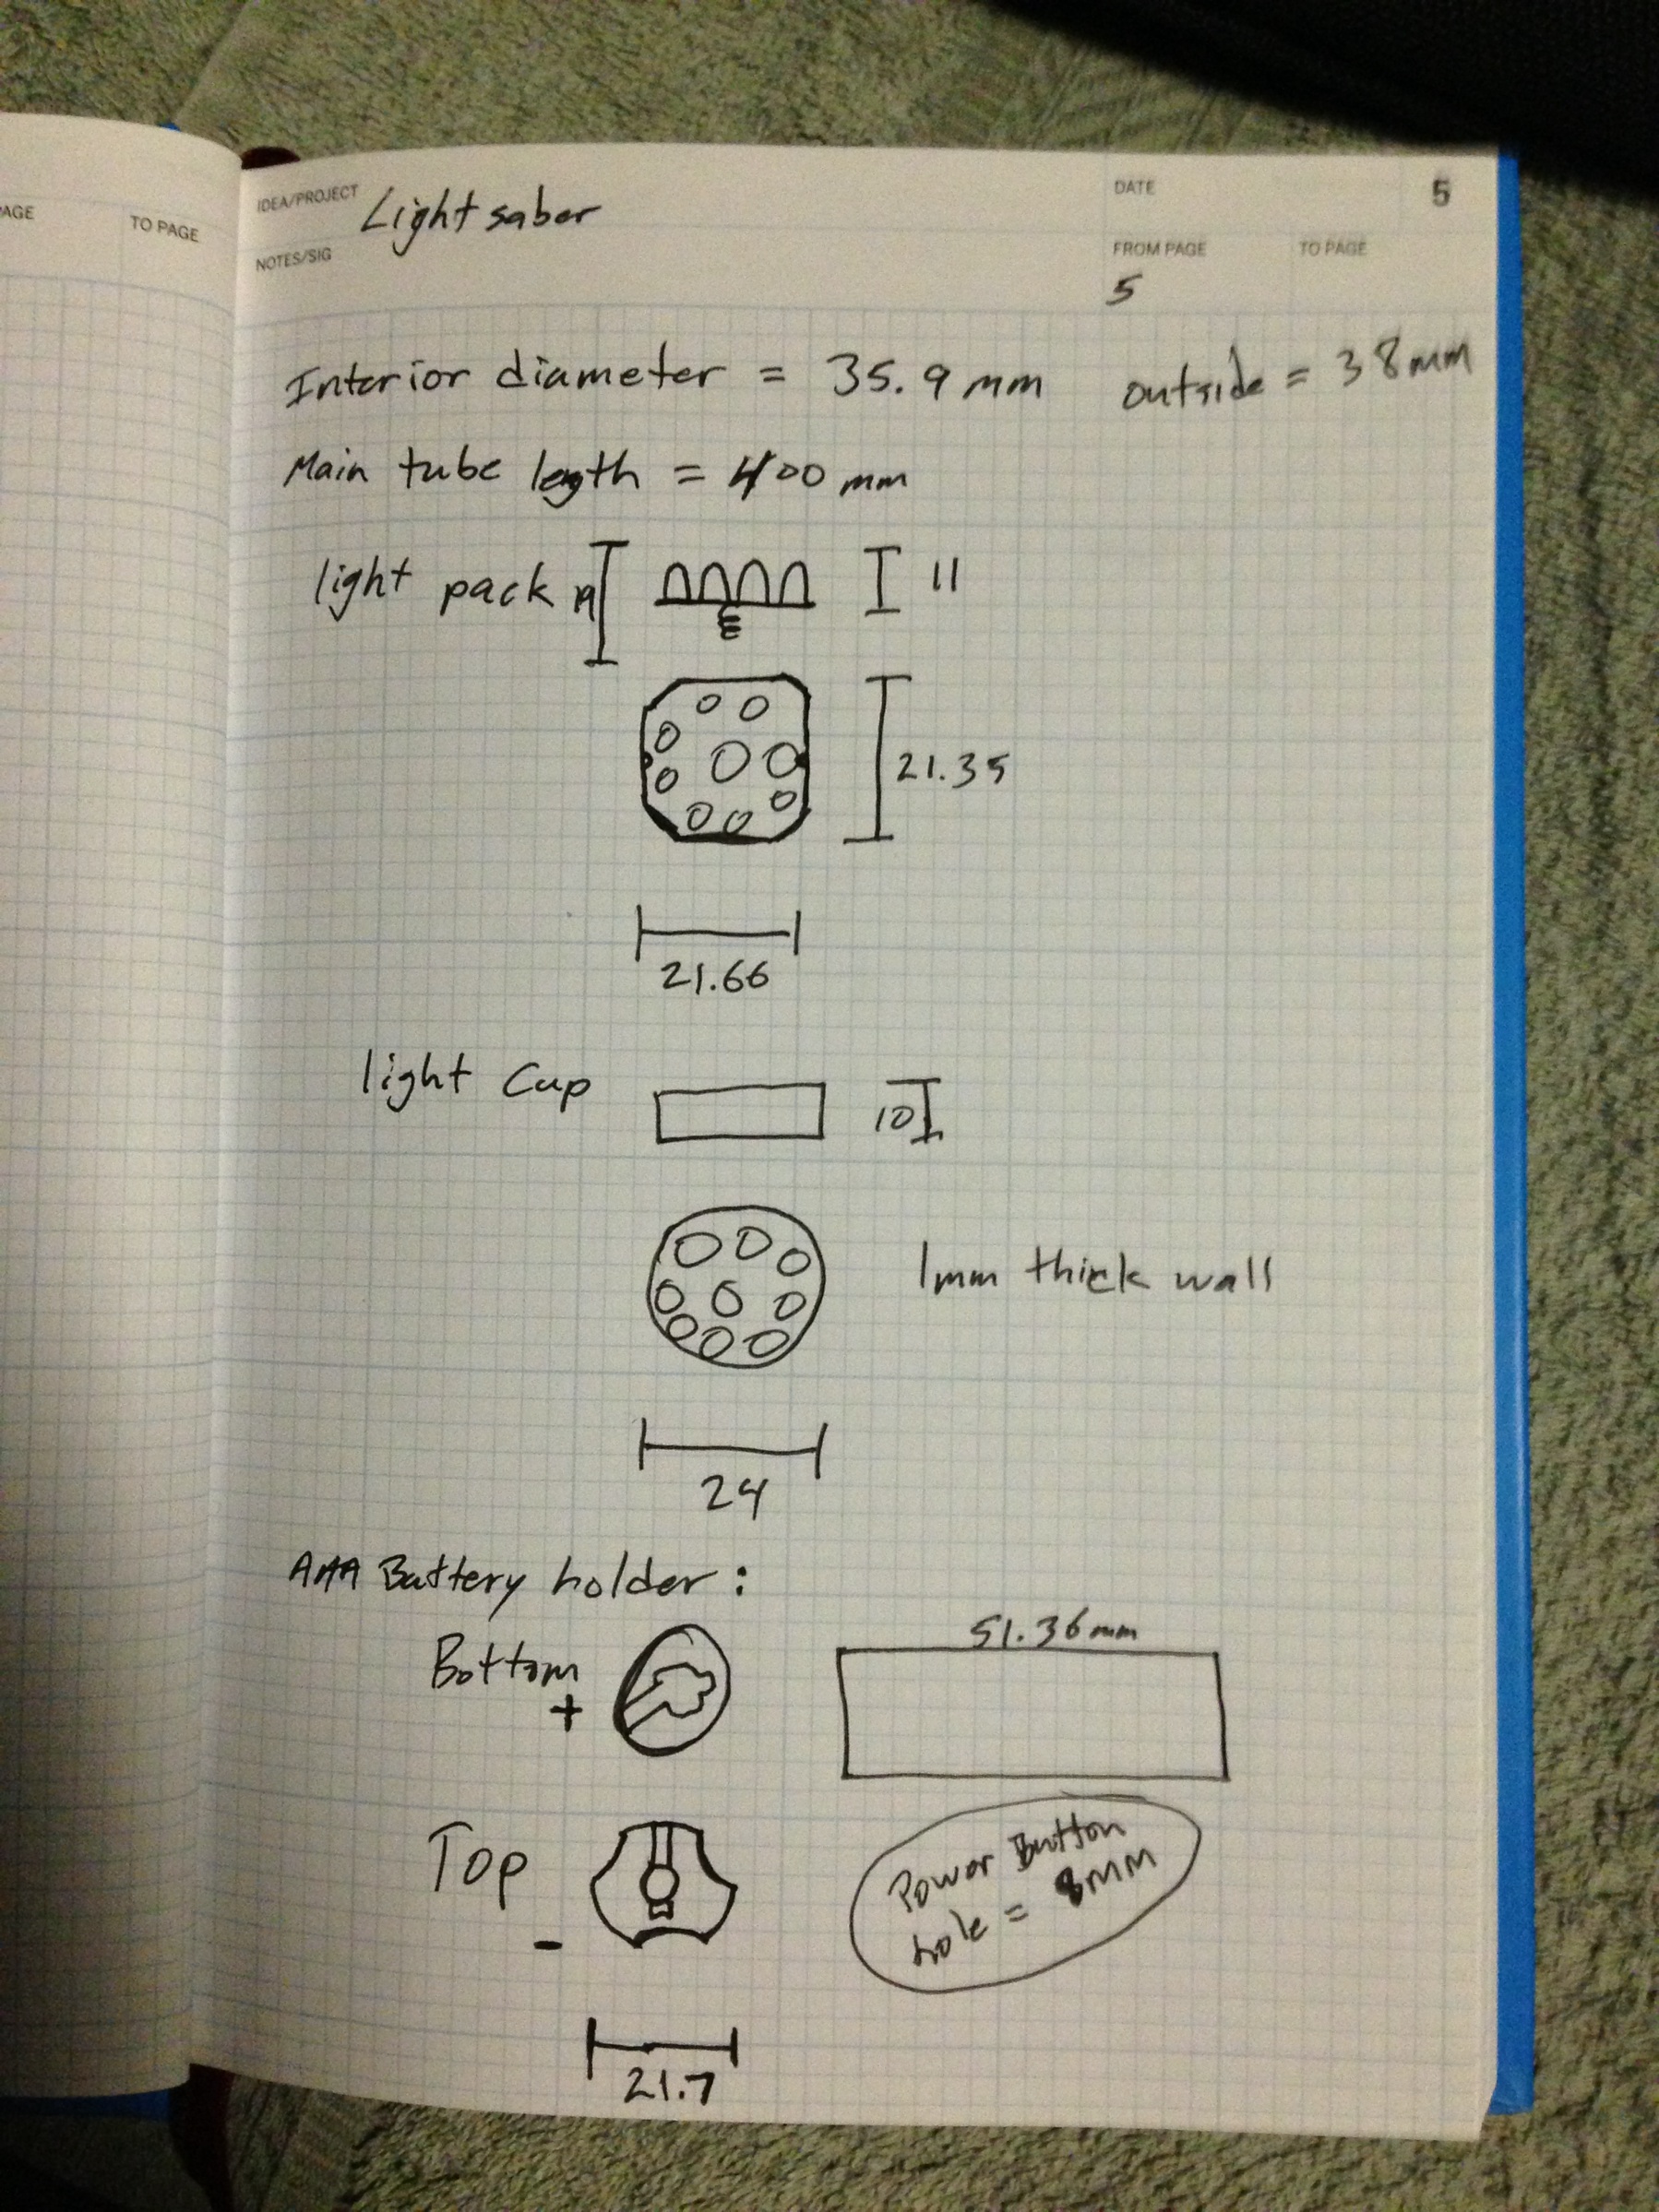 AGE
TO PAGE
IDEA/PROJECT Lightsaber
DATE
5
NOTES/SIG
FROM PAGE
TO PAGE
5
Interior diameter = 35.9 mm outside = 38mm
Main tube length = 400 mm
light pack 19 11
21.35
21.66
light Cup 10
1mm thick wall
24
AAA Battery holder:
51.36mm
Bottom
+
Top
-
Power Button
hole = 8mm
21.7